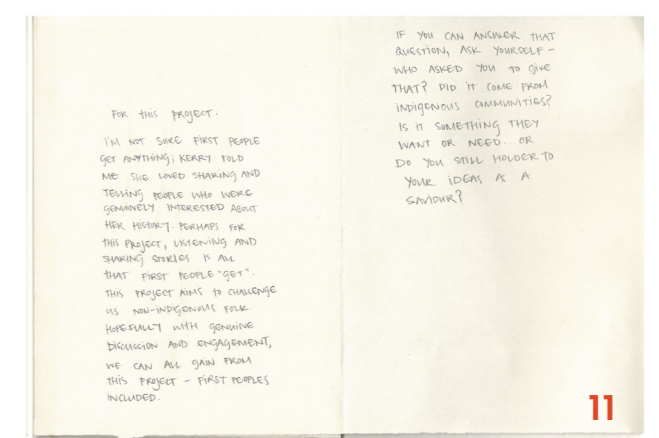 FOR THIS PROJECT:
I'M NOT SURE FIRST PEOPLE
GET ANYTHING; KERRY TOLD
ME SHE LOVED SHARING AND
TELLING PEOPLE WHO WERE
GENUINELY INTERESTED ABOUT
HER HISTORY. PERHAPS FOR
THIS PROJECT, LISTENING AND
SHARING STORIES IS ALL
THAT FIRST PEOPLE "GET".
THIS PROJECT AIMS TO CHALLENGE
US NON-INDIGENOUS FOLK.
HOPEFULLY WITH GENUINE
DISCUSSION AND ENGAGEMENT,
WE CAN ALL GAIN FROM
THIS PROJECT - FIRST PEOPLES
INCLUDED.
IF YOU CAN ANSWER THAT
QUESTION, ASK YOURSELF -
WHO ASKED YOU TO GIVE
THAT? DID IT COME FROM
INDIGENOUS COMMUNITIES?
IS IT SOMETHING THEY
WANT OR NEED... OR
DO YOU STILL HOLDER TO
YOUR IDEAS AS A
SAVIOUR?
11